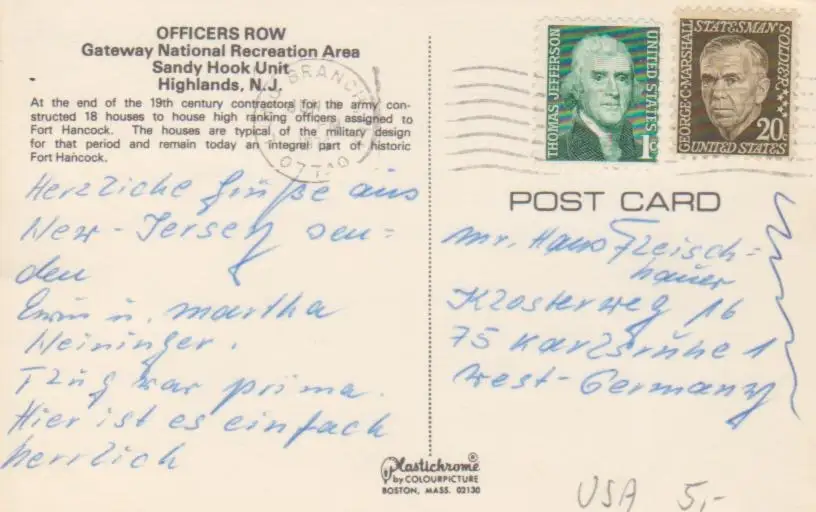 OFFICERS ROW
Gateway National Recreation Area
Sandy Hook Unit
Highlands, N.J.
At the end of the 19th century contractors for the army con-
structed 18 houses to house high ranking officers assigned to
Fort Hancock. The houses are typical of the military design
for that period and remain today an integral part of historic
Fort Hancock.
Herzliche Grüße aus
New-Jersey sen=
den
Erwin u. Martha
Neininger.
Flug war prima.
Hier ist es einfach
herrlich
BRANCH
07740
THOMAS JEFFERSON
UNITED STATES
1c
GEORGE C. MARSHALL
STATESMAN
SOLDIER
20c
UNITED STATES
POST CARD
Mr. Hans Fleisch=
hauer
Klosterweg 16
75 Karlsruhe 1
West-Germany
Plastichrome®
by COLOURPICTURE
BOSTON, MASS. 02130
USA 5,-